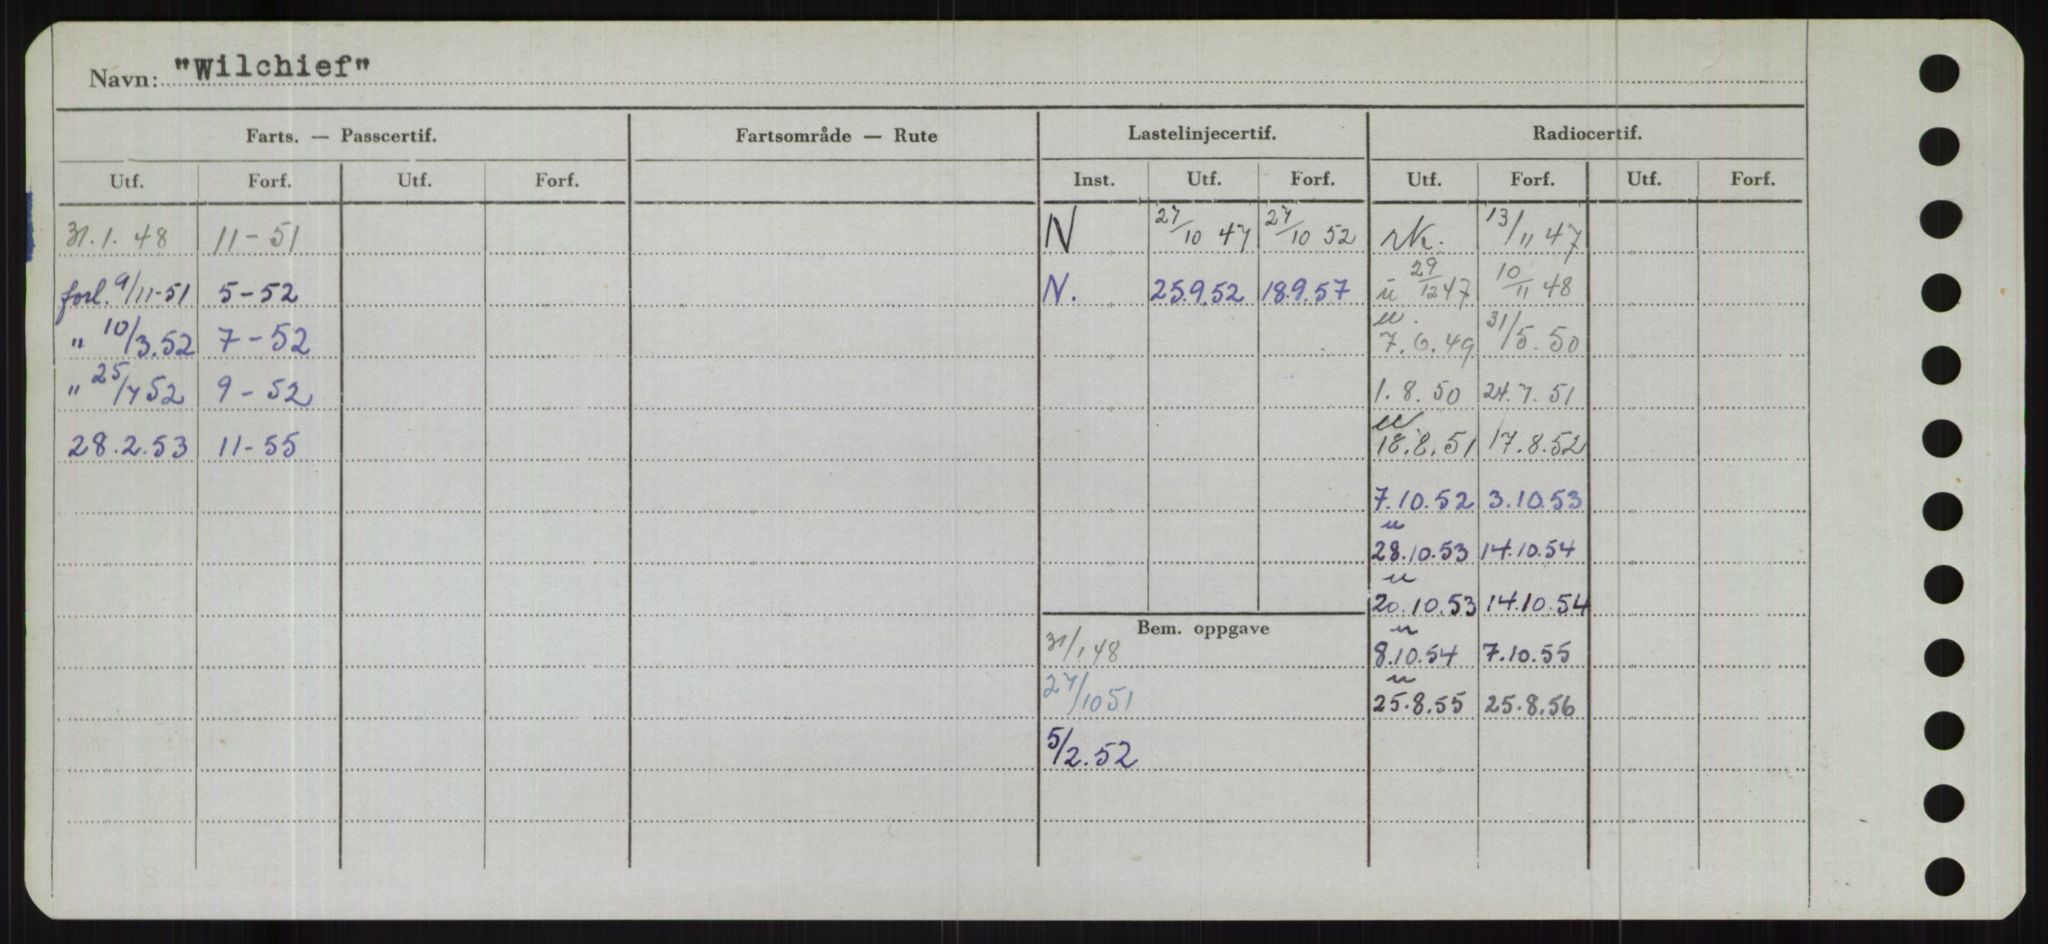 Navn: "Wilchief"
Farts. — Passcertif. Fartsområde — Rute Lastelinjecertif. Radiocertif.
Utf. Forf. Utf. Forf. Inst. Utf. Forf. Utf. Forf. Utf. Forf.
31.1.48 11-51 N 27/10 47 27/10 52 rk. 13/11 47
forl. 9/11-51 5-52 N. 25.9.52 18.9.57 u 29/12 47 10/11 48
" 10/3.52 7-52 u. 7.6.49 31/5.50
" 25/7 52 9-52 1.8.50 24.7.51
28.2.53 11-55 u 18.8.51 17.8.52
7.10.52 3.10.53
u
28.10.53 14.10.54
u
20.10.53 14.10.54
Bem. oppgave
u
31/1 48 8.10.54 7.10.55
u
27/10 51 25.8.55 25.8.56
5/2.52